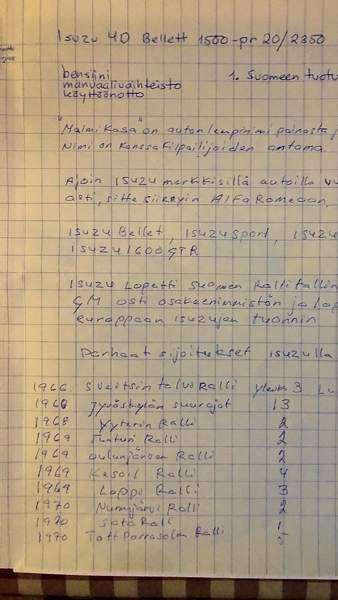 Isuzu 40 Bellett 1500-pr 20/2350
bensiini
manuaalivaihteisto
käyttöönotto
1. Suomeen tuotu
"Malmikasa" on auton lempinimi painosta
Nimi on kanssakilpailijoiden antama
Ajoin isuzu merkkisillä autoilla
asti, sitte siirryin Alfa Romeoon,
Isuzu Bellet, isuzu sport, isuzu
isuzu 1600 GTR
Isuzu Lopetti suomen Ralli tallin
GM osti osakeenimmistön ja lop
europpaan isuzujen tuonnin
Parhaat sijoitukset isuzulla
1966 Sveitsin talvi Ralli yleista 3 Lu
1968 Jyväskylän suurajot 13
1968 Yyterin Ralli 2
1969 Tunturi Ralli 2
1969 oulunjärven Ralli 2
1969 Kesoil Ralli 4
1969 Lappi Ralli 3
1970 Nurmijärvi Ralli 2
1970 Sata Ralli 1
1970 Ralli